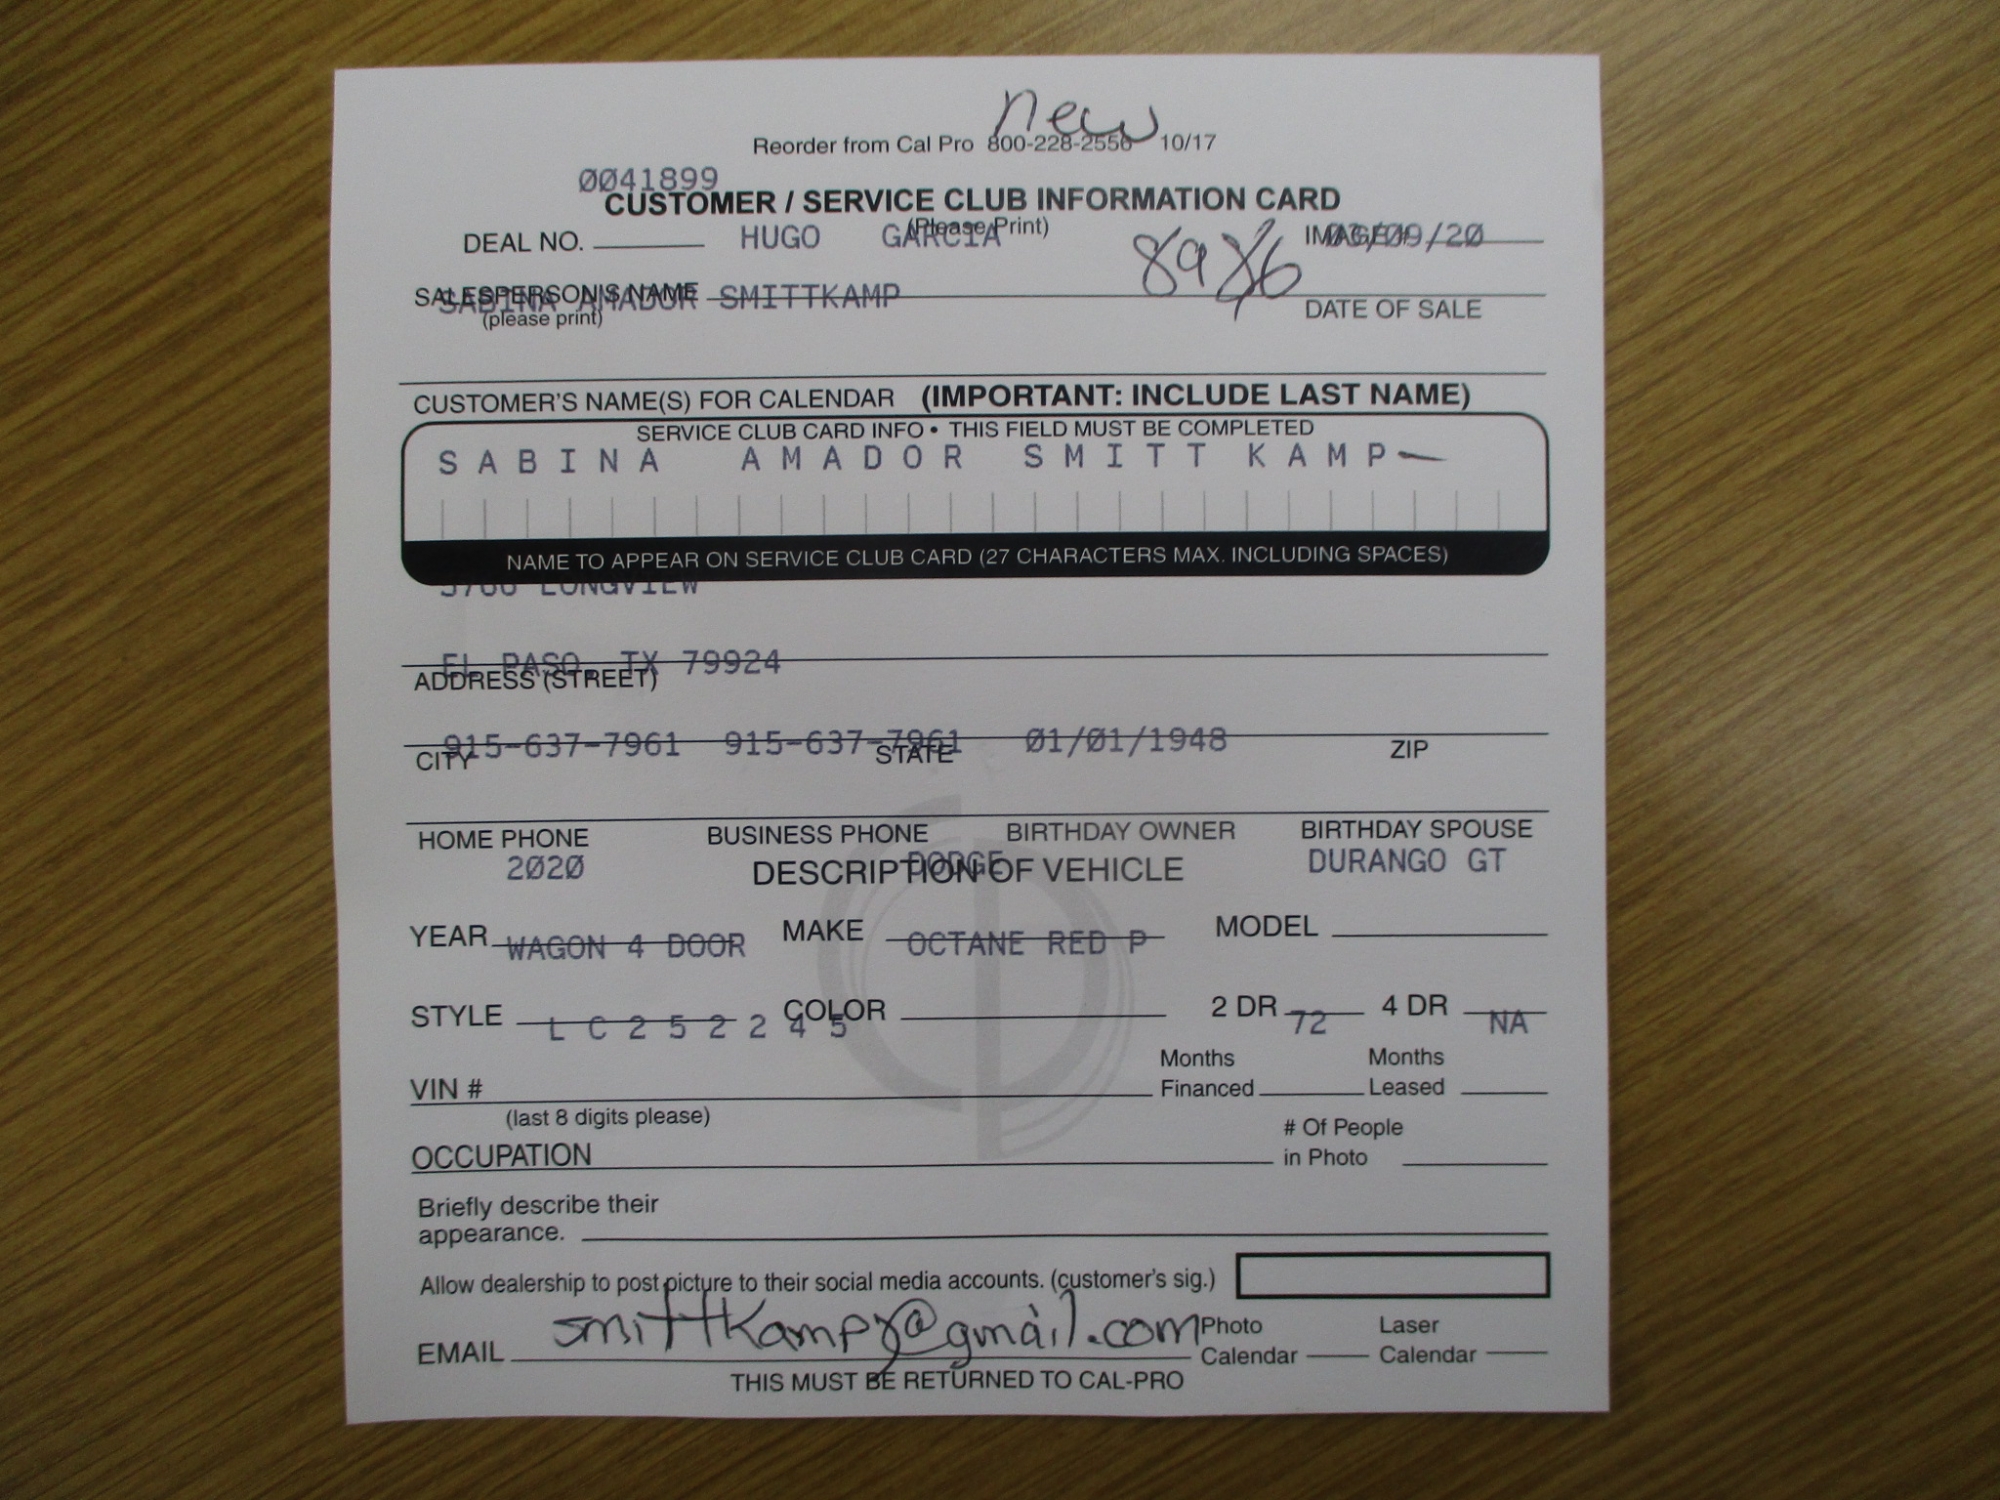 new
Reorder from Cal Pro 800-228-2556 10/17
0041899
CUSTOMER / SERVICE CLUB INFORMATION CARD
(Please Print)
DEAL NO. HUGO GARCIA IMAGE# /09/20
SALESPERSON'S NAME
SABINA AMADOR SMITTKAMP
(please print) DATE OF SALE
CUSTOMER'S NAME(S) FOR CALENDAR (IMPORTANT: INCLUDE LAST NAME)
SERVICE CLUB CARD INFO • THIS FIELD MUST BE COMPLETED
SABINA AMADOR SMITTKAMP
NAME TO APPEAR ON SERVICE CLUB CARD (27 CHARACTERS MAX. INCLUDING SPACES)
LONGVIEW
EL PASO, TX 79924
ADDRESS (STREET)
915-637-7961 915-637-7961 01/01/1948
CITY STATE ZIP
HOME PHONE BUSINESS PHONE BIRTHDAY OWNER BIRTHDAY SPOUSE
2020 DODGE DURANGO GT
DESCRIPTION OF VEHICLE
YEAR MAKE MODEL
WAGON 4 DOOR OCTANE RED P
STYLE COLOR 2 DR 4 DR
LC252245 72 NA
VIN # Months Financed Months Leased
(last 8 digits please)
OCCUPATION # Of People in Photo
Briefly describe their
appearance.
Allow dealership to post picture to their social media accounts. (customer's sig.)
EMAIL smittkampy@gmail.com Photo Calendar Laser Calendar
THIS MUST BE RETURNED TO CAL-PRO